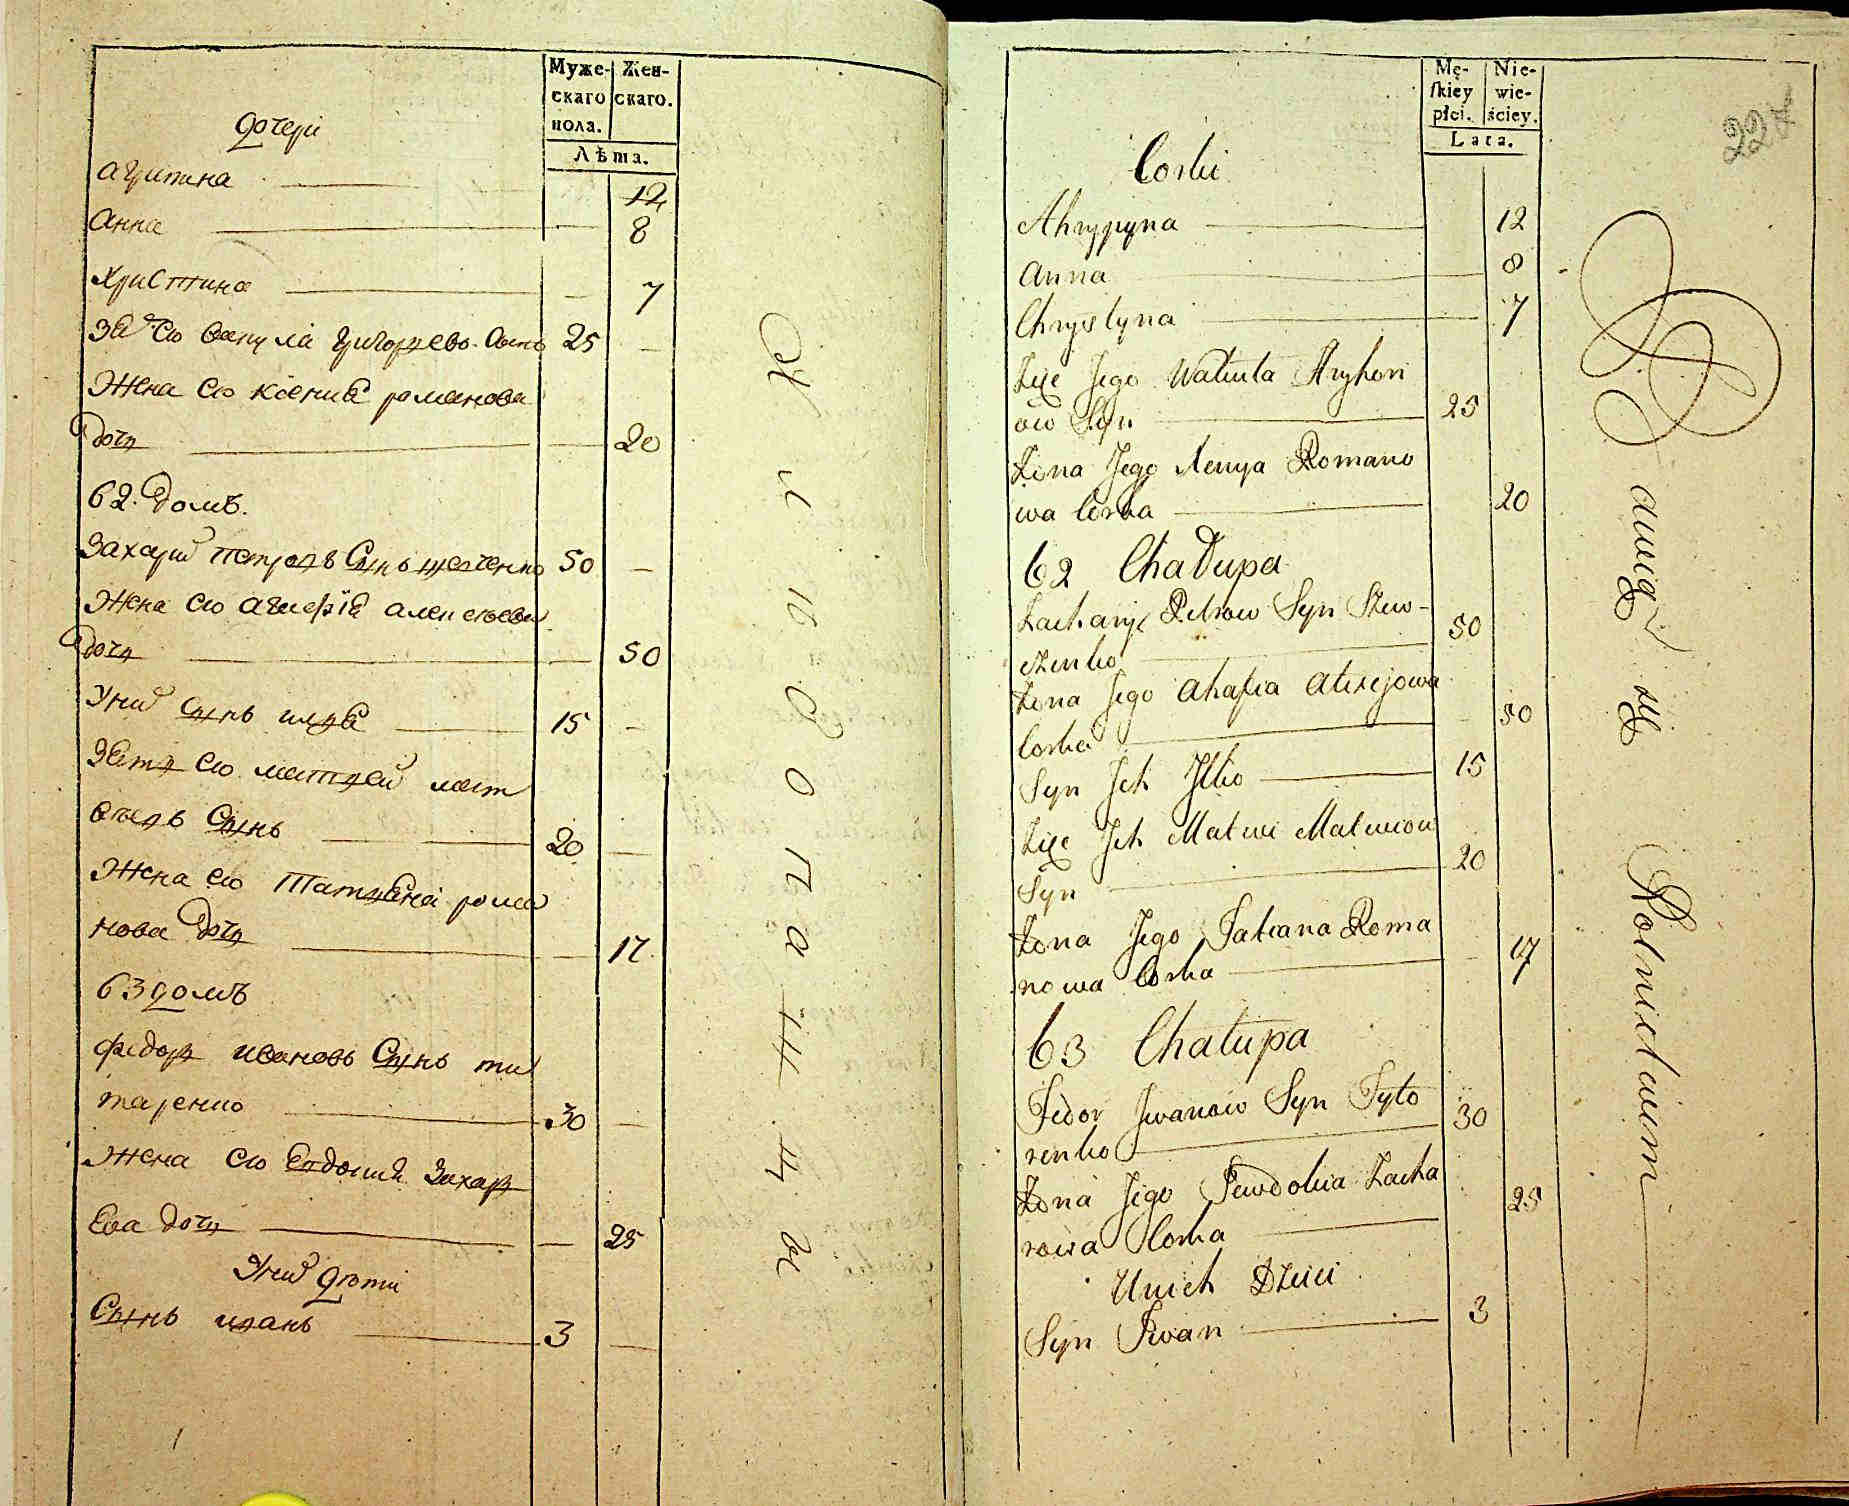 Муже-
скаго
пола.
Жен-
скаго.
Лѣта.
дочери
агрипина 12
Анна 8
Христина 7
зять его вакула григорьевъ сынъ 25
Жена его Ксения романова
дочь 20
62. домъ.
Захарий петровъ Сынъ шевченко 50
Жена его агафiя алексеева
дочь 50
Унихъ сынъ илья 15
Зять его матвей мат
веевъ Сынъ 20
Жена его Татьяна рома
нова дочь 17
63 домъ
федоръ ивановъ Сынъ ти
таренко 30
Жена его Евдокия Захар
ева дочь 25
Унихъ дети
Сынъ иванъ 3
Mę-
ſkiey
płci.
Nie-
wie-
ściey.
Lata.
227
Corki
Ahrypyna 12
Anna 8
Chrystyna 7
Zięć Jego Wakuła Hryhori
ow Syn 25
Żona Jego Xenya Romano
wa Corka 20
62 Chałupa
Zacharyi Petrow Syn Szew-
czenko 50
Żona Jego Ahafia Alexijowa
Corka 50
Syn Ich Illko 15
Zięć Ich Matwi Matwiow
Syn 20
Żona Jego Tatiana Roma
nowa Corka 17
63 Chałupa
Fedor Iwanow Syn Tyto
renko 30
Żona Jego Jewdokia Zacha
rowa Corka 25
Unich Dzieci
Syn Iwan 3